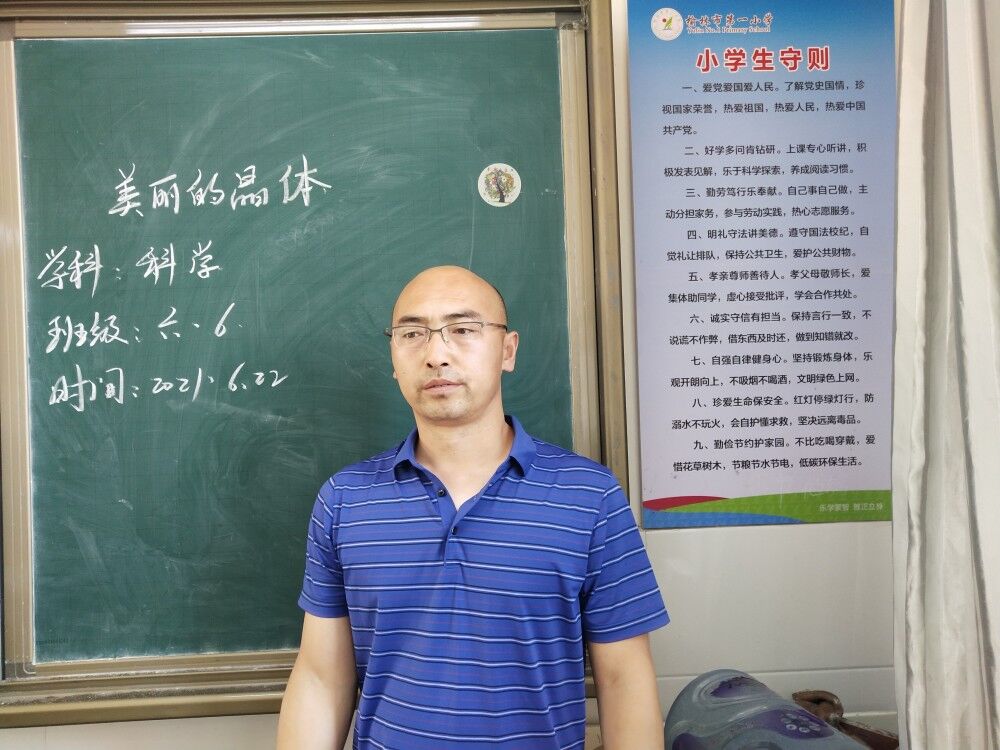 美丽的晶体
学科：科学
班级：六.6.
时间：2021.6.22
榆林市第一小学
Yulin No.1 Primary School
小学生守则
一、爱党爱国爱人民。了解党史国情，珍
视国家荣誉，热爱祖国，热爱人民，热爱中国
共产党。
二、好学多问肯钻研。上课专心听讲，积
极发表见解，乐于科学探索，养成阅读习惯。
三、勤劳笃行乐奉献。自己事自己做，主
动分担家务，参与劳动实践，热心志愿服务。
四、明礼守法讲美德。遵守国法校纪，自
觉礼让排队，保持公共卫生，爱护公共财物。
五、孝亲尊师善待人。孝父母敬师长，爱
集体助同学，虚心接受批评，学会合作共处。
六、诚实守信有担当。保持言行一致，不
说谎不作弊，借东西及时还，做到知错就改。
七、自强自律健身心。坚持锻炼身体，乐
观开朗向上，不吸烟不喝酒，文明绿色上网。
八、珍爱生命保安全。红灯停绿灯行，防
溺水不玩火，会自护懂求救，坚决远离毒品。
九、勤俭节约护家园。不比吃喝穿戴，爱
惜花草树木，节粮节水节电，低碳环保生活。